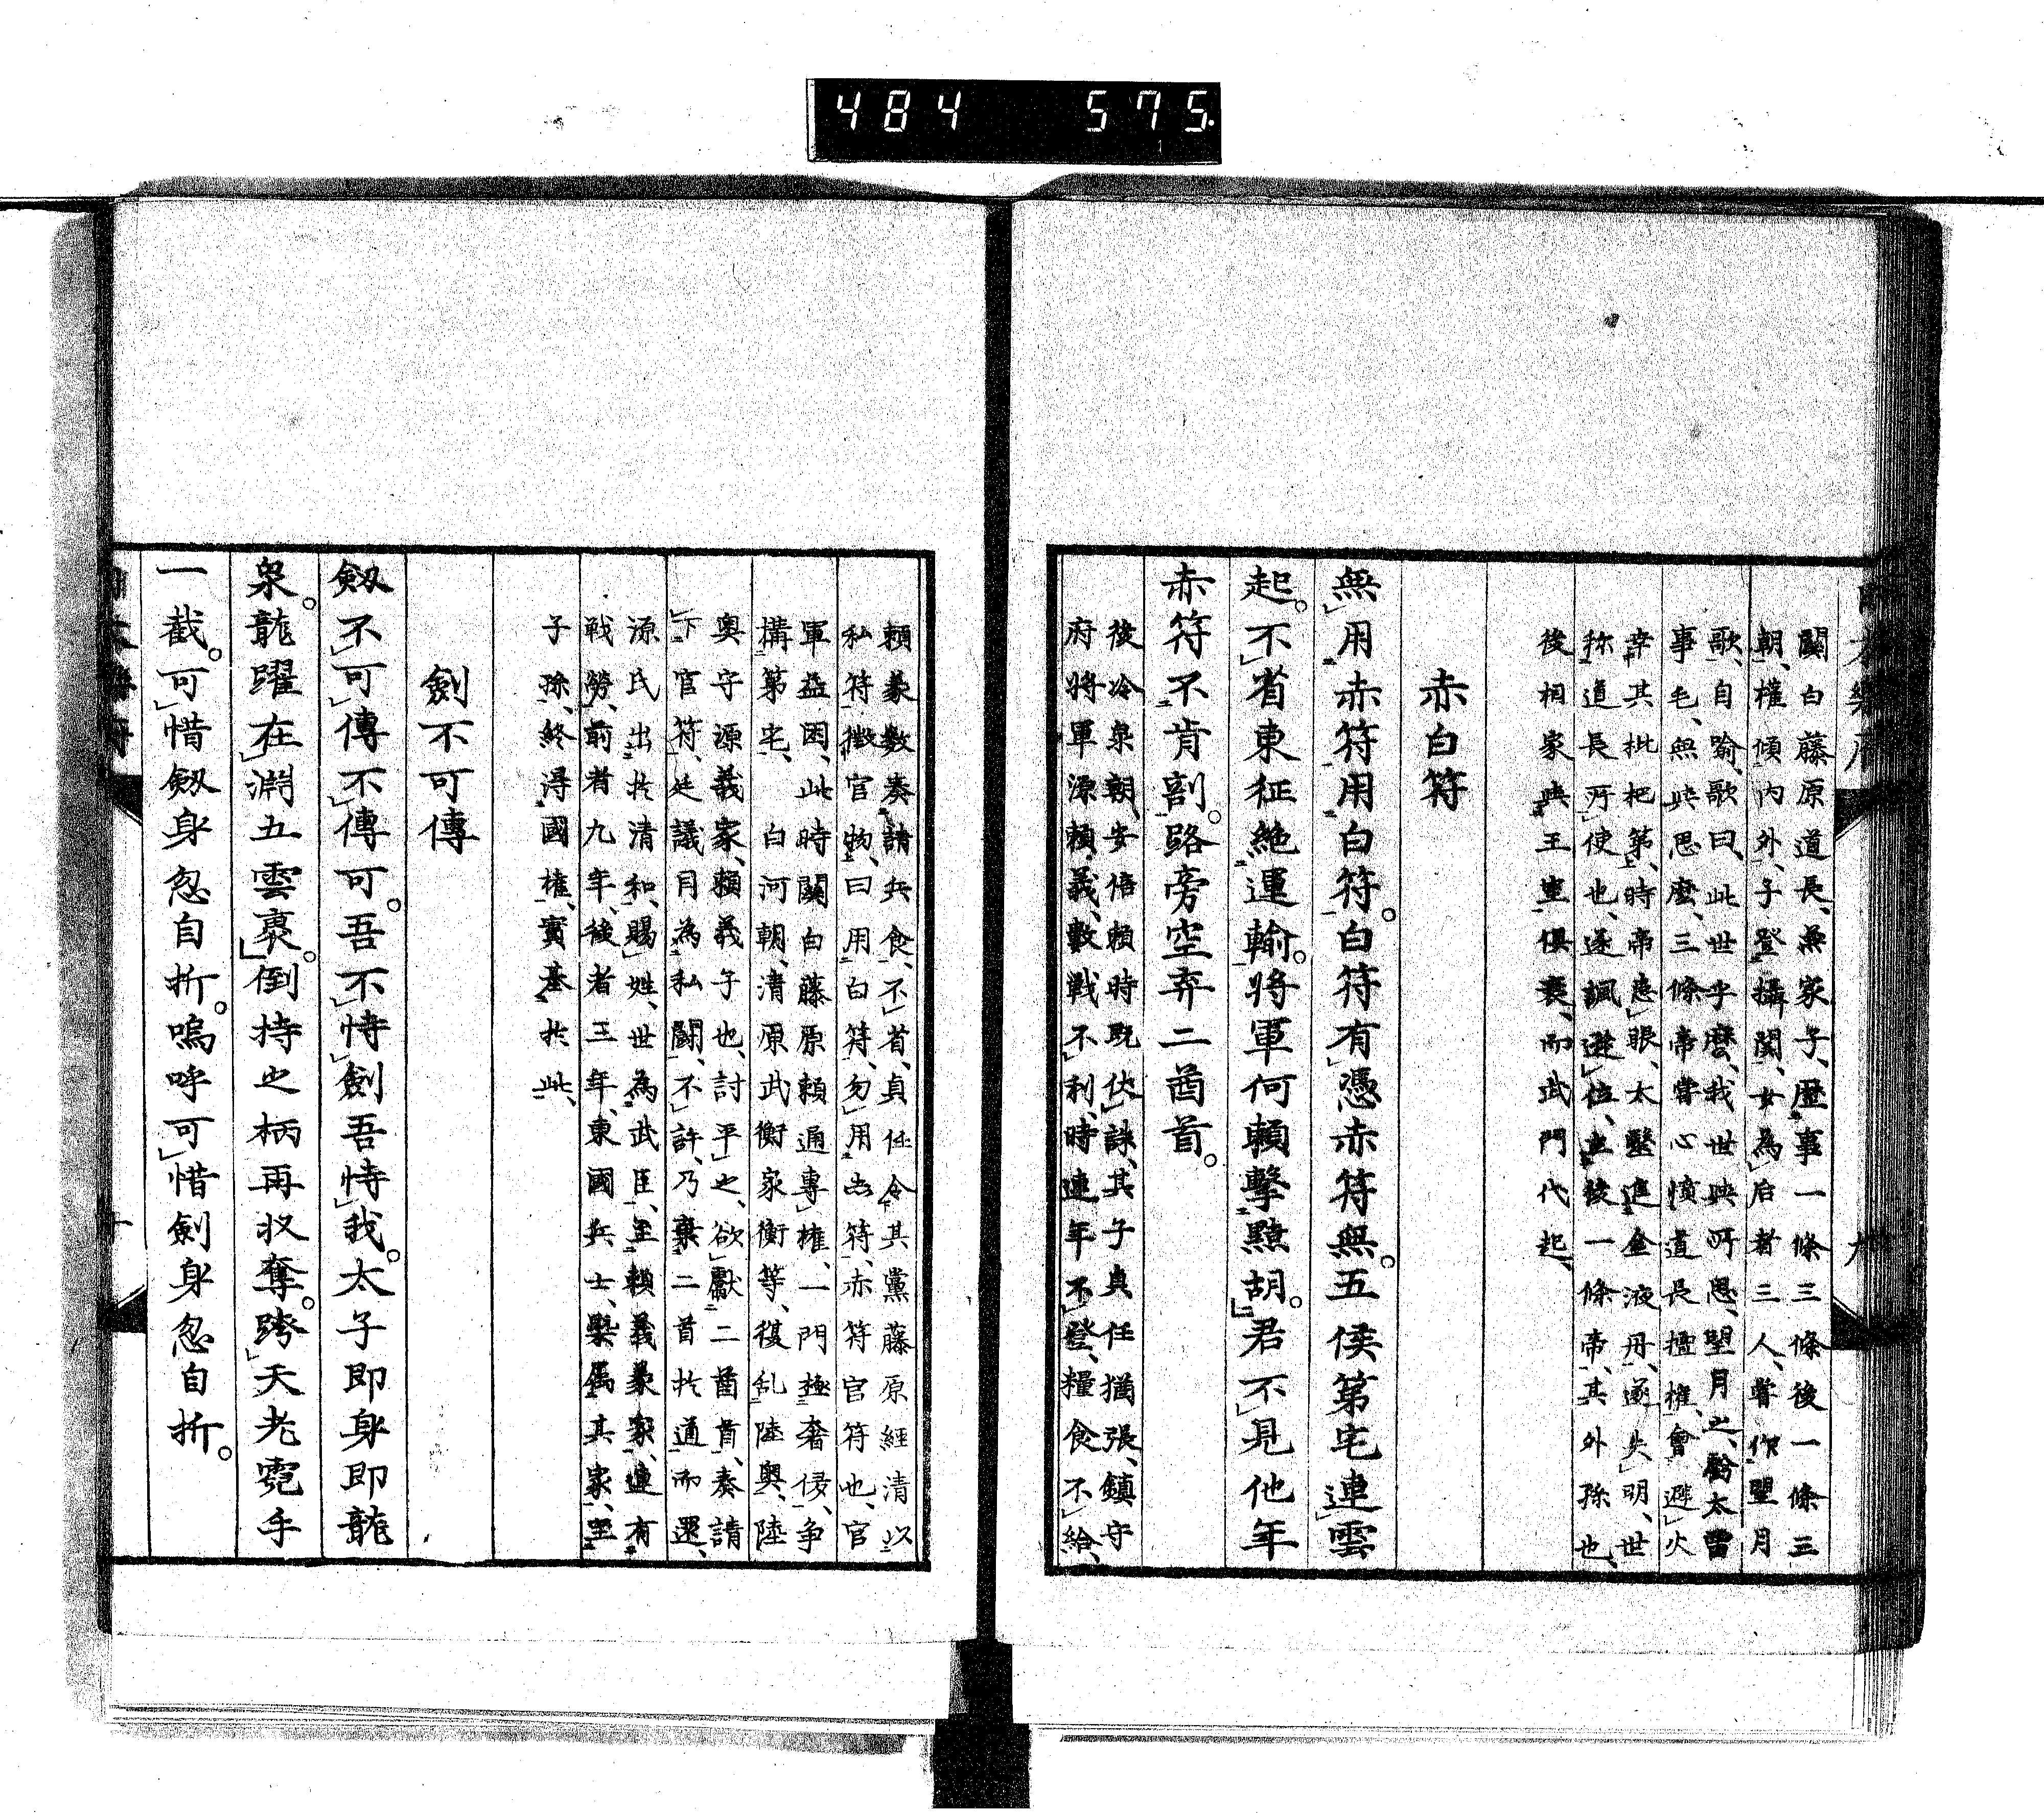 484 575
關白藤原道長、兼家子、歷事一條三條後一條三
朝、權傾內外、子登攝關、女為后者三人、嘗作望月
歌、自喻、歌曰、此世乎麼、我世與所思、望月之、虧太留
事毛、無與思麼、三條帝嘗心憤道長擅權、會避火
幸其枇杷第、時帝患眼、太醫進金液丹、遂失明、世
称道長所使也、遂諷遜位、立後一條帝、其外孫也、
後相家與王室俱衰、而武門代起、
赤白符
無用赤符用白符。白符有憑赤符無。五侯第宅連雲
起。不省東征絶運輸。將軍何頼擊黠胡。君不見他年
赤符不肯割。路旁空弃二酋首。
後冷泉朝、安倍頼時既伏誅、其子貞任猶張、鎮守
府將軍源頼義、數戰不利、時連年不登、糧食不給、
頼義數奏請兵食、不省、貞任令其黨藤原經清以
私符徵官物、曰用白符、勿用赤符、赤符官符也、官
軍益困、此時關白藤原頼通專權、一門極奢侈、争
搆第宅、白河朝、清原武衡家衡等、復乱陸奧、陸
奧守源義家、頼義子也、討平之、欲獻二酋首、奏請
下官符、廷議目為私闘、不許、乃棄二首於道而還、
源氏出於清和、賜姓、世為武臣、至頼義義家、連有
戰勞、前者九年、後者三年、東國兵士、槩属其家、至
子孫、終得國權、實基於此、
劍不可傳
劔不可傳不傳可。吾不恃劍吾恃我。太子即身即龍
泉。龍躍在淵五雲裹。倒持之柄再収奪。跨天老霓手
一截。可惜劔身忽自折。嗚呼可惜劍身忽自折。